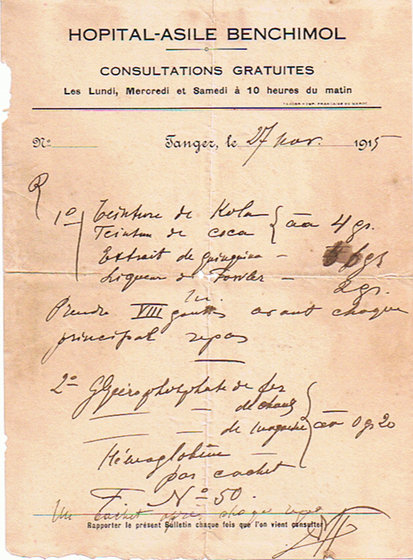 HOPITAL-ASILE BENCHIMOL
CONSULTATIONS GRATUITES
Les Lundi, Mercredi et Samedi à 10 heures du matin
No Tanger, le 27 nov. 1915
R
1o Teinture de Kola
Teinture de coca } āā 4 gs.
Extrait de quinquina — 6 gs
Liqueur de Fowler — 2 gs.
M.
Prendre VIII gouttes avant chaque
principal repas
2o Glycérophosphate de fer
— de chaux
— de magnésie } āā 0 gs 20
Hémoglobine
pas cachet
F. No 50.
Un cachet après chaque repas
Rapporter le présent Bulletin chaque fois que l'on vient consulter